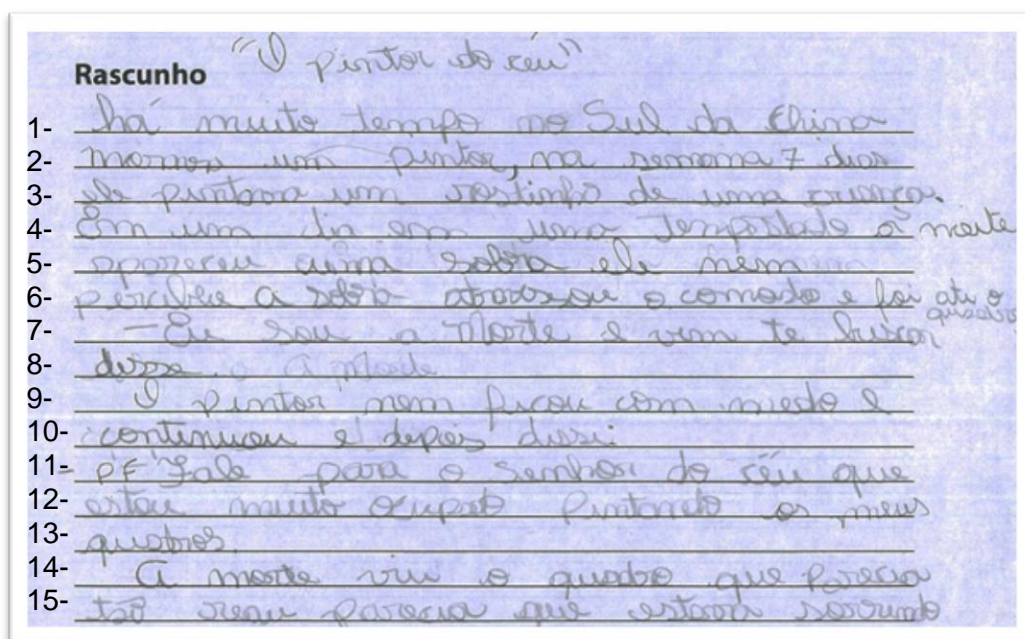 "O pintor do céu"
Rascunho
1- há muito tempo no Sul da China
2- morrou um pintor, na semana 7 dias
3- ele pintava um rostinho de uma criança.
4- Em um dia em uma tempestade a noite
5- apareceu uma sobra ele nem
6- percibeu a sobra atravesou o comodo e foi atu o quadro
7- — Eu sou a Morte e vim te buscar
8- disse a Morte
9- O Pintor nem ficou com medo e
10- continuou e depois disse:
11- - Fale para o Senhor do céu que
12- estou muito ocupado Pintando os meus
13- quadros.
14- A morte viu o quadro que Parecia
15- tão real parecia que estava sorrindo